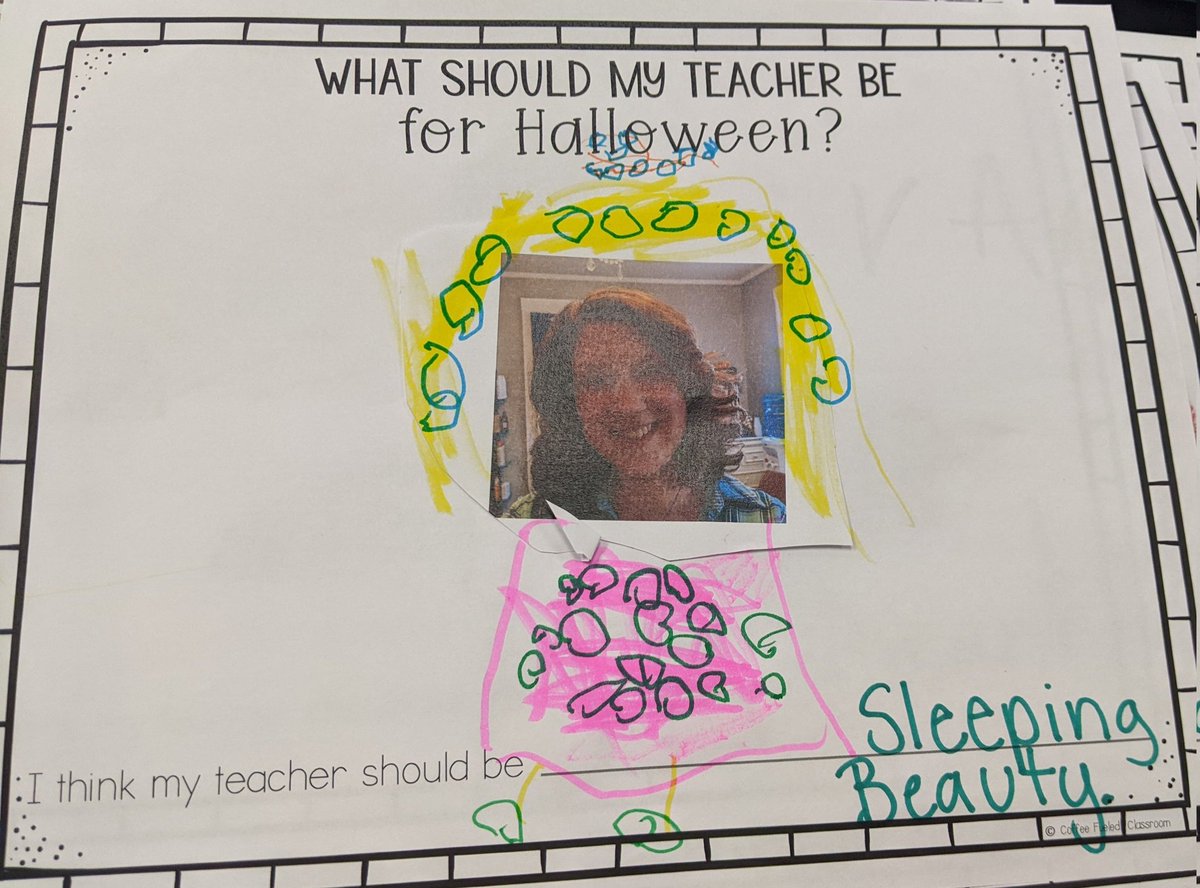 WHAT SHOULD MY TEACHER BE
for Halloween?
I think my teacher should be Sleeping
Beauty.
© Coffee Fueled Classroom